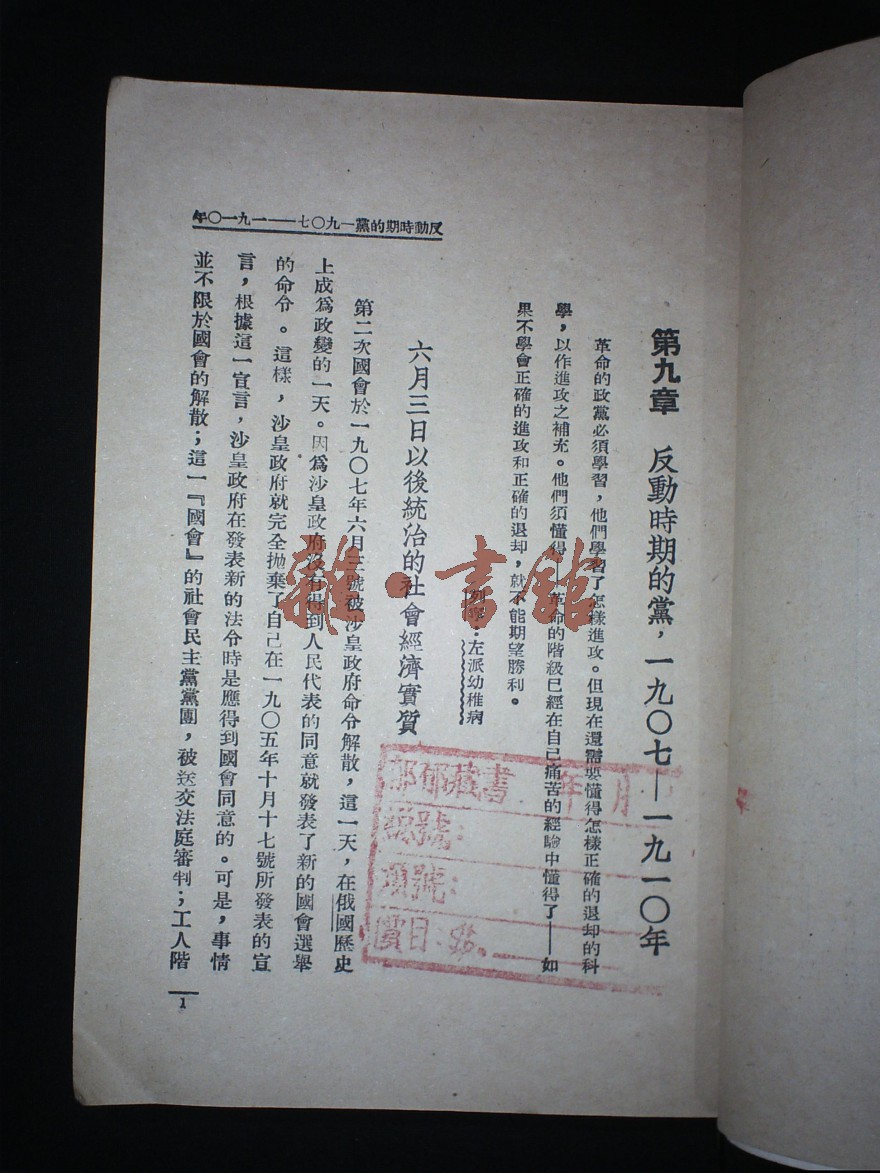 反動時期的黨一九〇七——一九一〇年
第九章　反動時期的黨，一九〇七—一九一〇年
革命的政黨必須學習，他們學習了怎樣進攻。但現在還需要懂得怎樣正確的退却的科
學，以作進攻之補充。他們須懂得——革命的階級已經在自己痛苦的經驗中懂得了——如
果不學會正確的進攻和正確的退却，就不能期望勝利。
列寧：左派幼稚病
六月三日以後統治的社會經濟實質
第二次國會於一九〇七年六月三號被沙皇政府命令解散，這一天，在俄國歷史
上成爲政變的一天。因爲沙皇政府沒有得到人民代表的同意就發表了新的國會選舉
的命令。這樣，沙皇政府就完全拋棄了自己在一九〇五年十月十七號所發表的宣
言，根據這一宣言，沙皇政府在發表新的法令時是應得到國會同意的。可是，事情
並不限於國會的解散；這一『國會』的社會民主黨黨團，被送交法庭審判；工人階
1
雜·書館
藏書　年　月
號：
號：
價目：